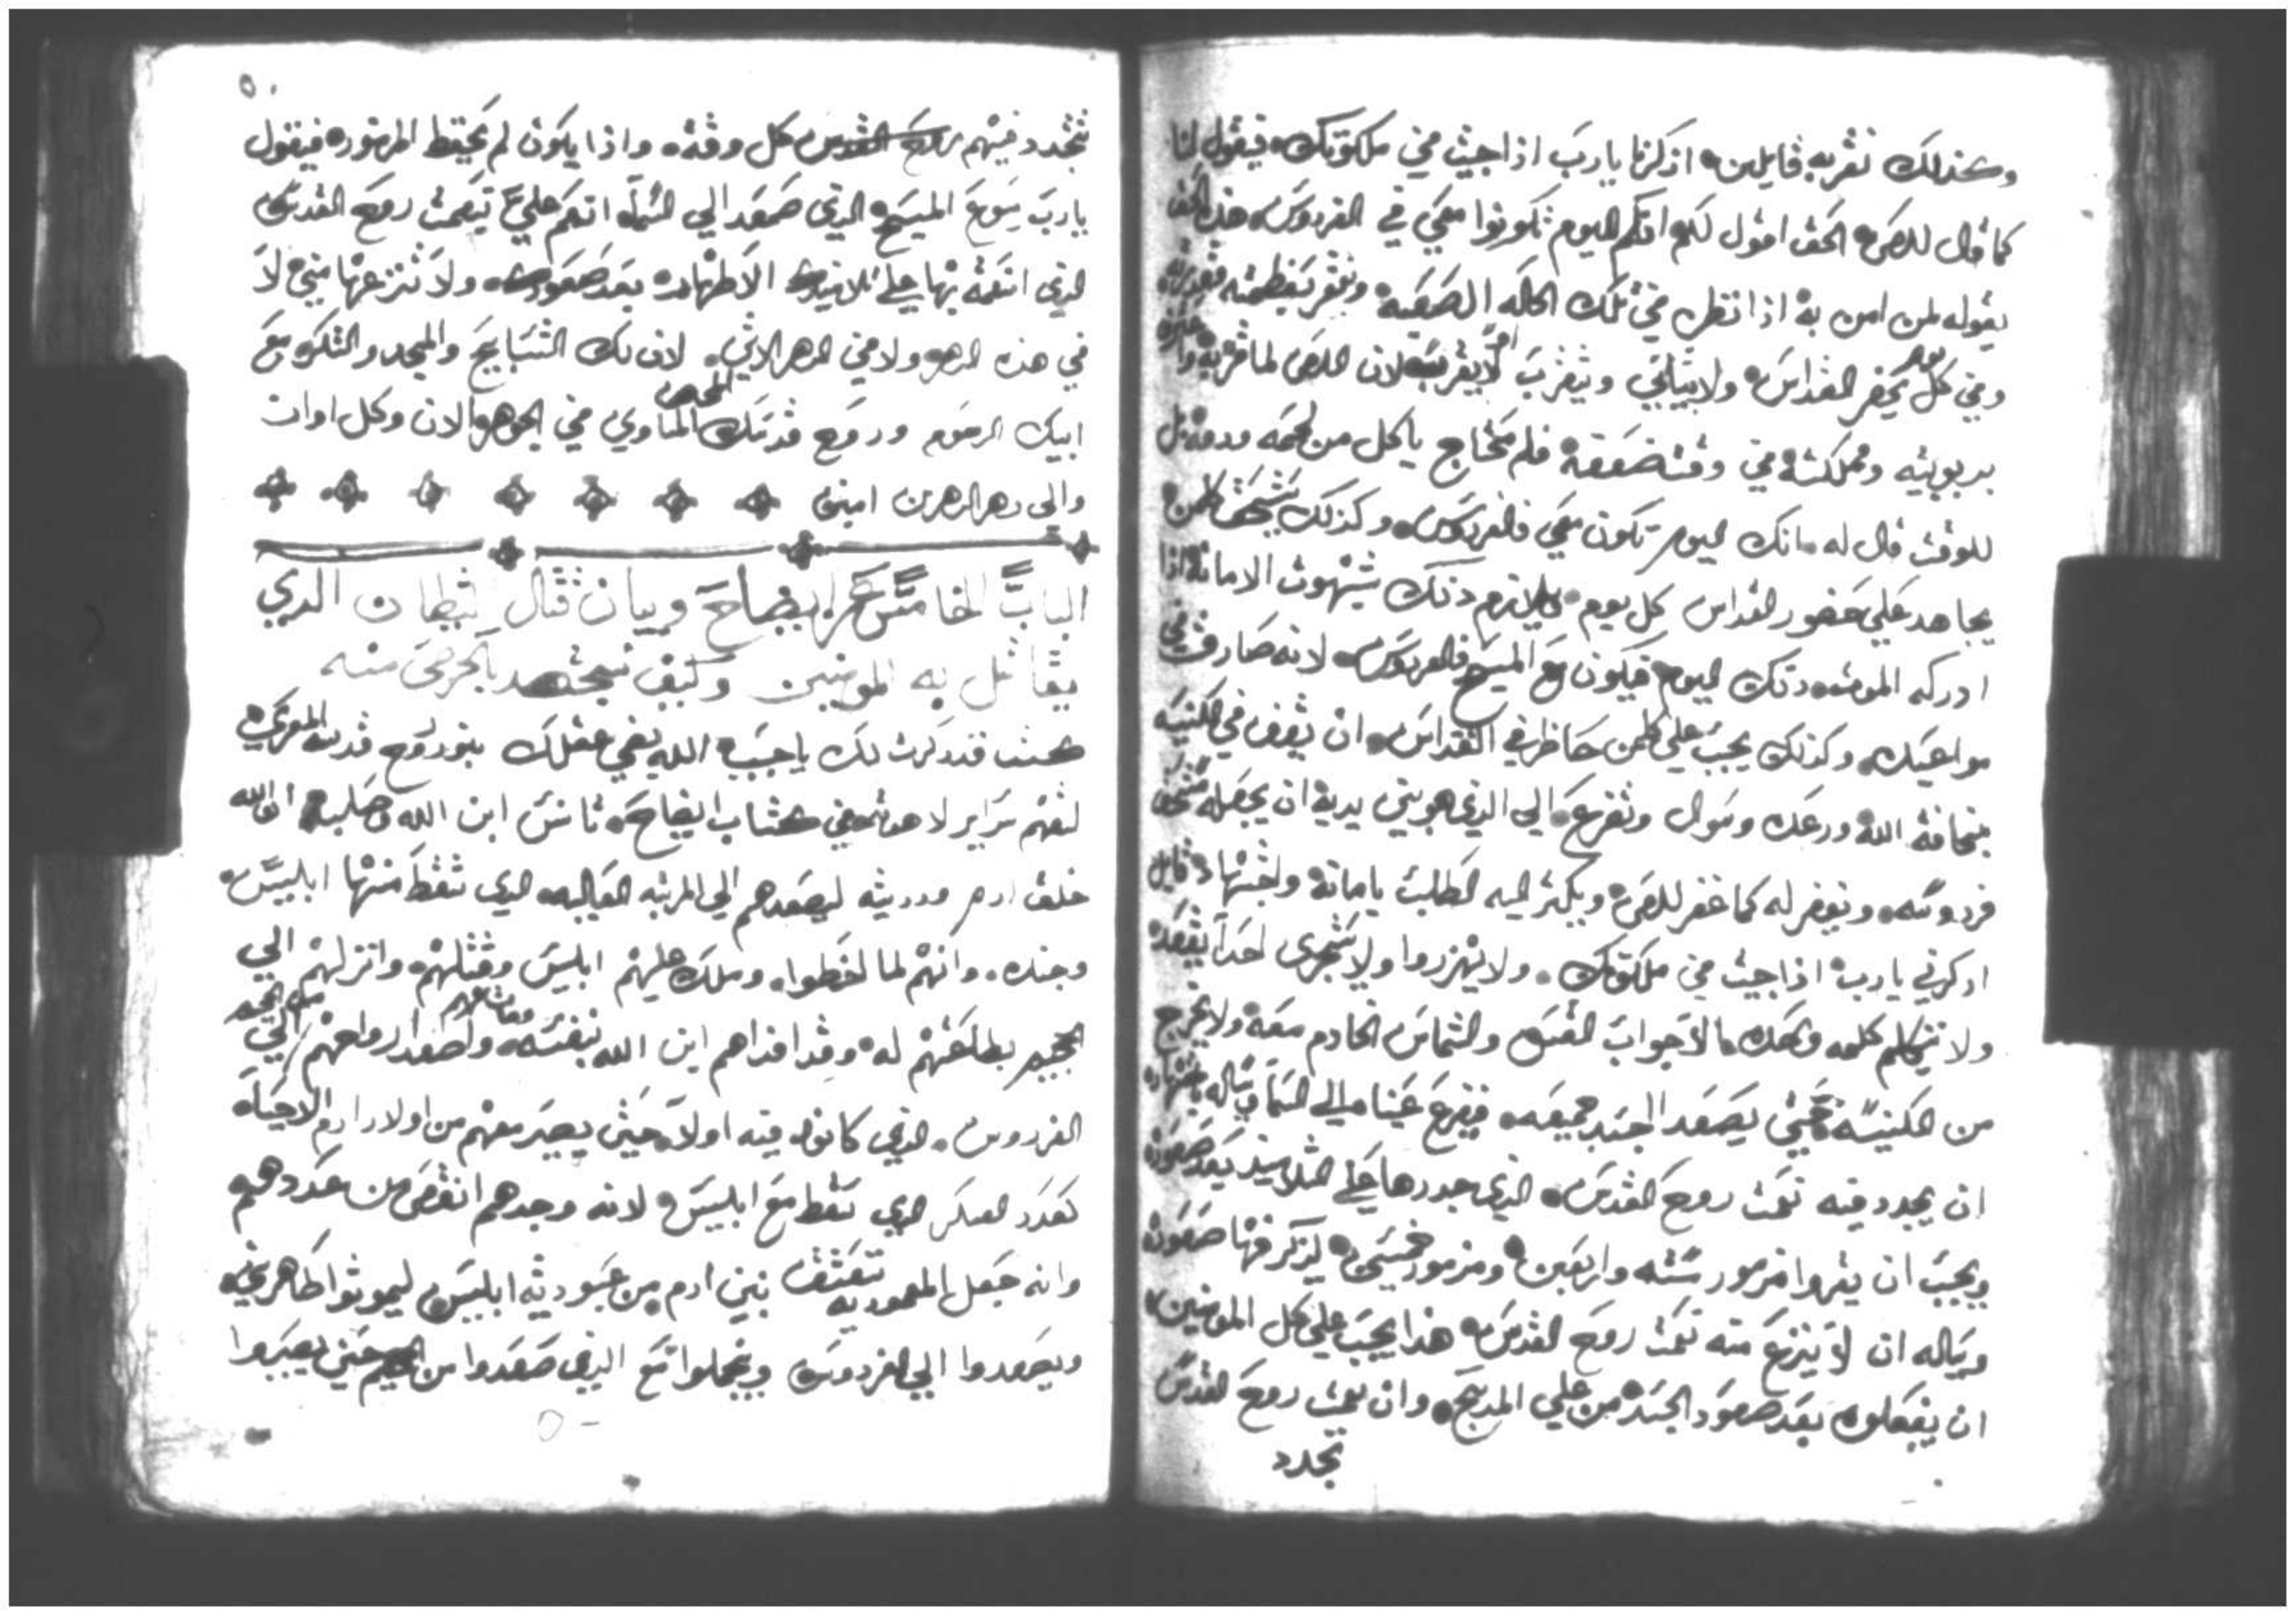 وكذلك نقربه قايلين اذكرنا يارب اذا جيت في ملكوتك فيقول لنا
كما قال للص الحق اقول لكم انكم اليوم تكونوا معي في الفردوس هذا الحق
يقوله لمن امن به اذا نظر في تلك الحاله الصعبه ويقر بعظمته
وفي كل يوم يحضر القداس ولا يتقرب لان اللص لما قر به
بربوبيته ومملكته في وقت ضعفه فلم يحتاج ياكل من لحمه ودمه بل
للوقت قال له انك اليوم تكون معي فالفردوس وكذلك يستحق كلمن
يجاهد علي حضور القداس كل يوم بشهوت الامانه اذا
ادركه الموت دلك اليوم فيكون مع المسيح فالفردوس لانه صادق في
مواعيده وكذلك يجب علي كلمن حاظر في القداس ان يقف في الكنيسه
بمخافة الله ورعده وسوال وتضرع الي الذي هو بين يديه ان يجعله مستحق
فردوسه ويغفر له كما غفر للص ويكثر اليه الطلبت بامانه واجتهاد قايل
ادكرني يارب اذا جيت في ملكوتك ولا يهزروا ولا يتجرى احدا يقعد
ولا يتكلم كلمه واحده الا جواب القسيس والشماس الخادم معه ولا يخرج
من الكنيسه حتي يصعد الجسد جميعه فيرفع عيناه الي السما ويساله باجتهاد
ان يجدد فيه نعمت روح القدس الذي جددها علي التلاميذ بعد صعوده
ويجب ان يقروا مزمور سته واربعين ومزمور خمسين ليذكر فيها صعوده
ويساله ان لا ينزع منه نعمت روح القدس هذا يجب علي كل المومنين
ان يفعلوه بعد صعود الجسد من علي المدبح وان نعمت روح القدس
تجدد
٥٠
تتجدد فيهم كل وقت واذا يكون لم يحفظ المزمور فيقول
يارب يسوع المسيح الذي صعد الي السما انعم علي بنعمت روح القدس
الذي انعمت بها علي تلاميدك الاطهار بعد صعودك ولا تنزعها مني لا
في هذه الدهر ولا في الدهر الاتي لان لك التسابيح والمجد والشكر مع
ابيك الرحوم وروح قدسك المحيي المساوي في الجوهر الان وكل اوان
والى دهر الدهرين امين
الباب الخامس عشر ايضاح وبيان قتال الشيطان الدي
يقاتل به المومنين وكيف نجتهد بالحرص منه
كنت قد ذكرت لك ياحبيب الله يضي عقلك بنور روح قدسه المعزي
لتفهم سراير لاهوته في كتاب ايضاح تانس ابن الله وصليبه ان الله
خلق ادم ودريته ليصعدهم الي المرتبه العاليه الدي سقط منها ابليس
وجنده وانهم لما اخطوا وملك عليهم ابليس وقتلهم وانزلهم الي
الجحيم بطاعتهم له وقد افداهم ابن الله بنفسه واصعد ارواحهم من الجحيم الي
الفردوس الذي كانوا فيه اولا حتي يصير معهم من اولاد ادم الاحياه
كعدد العسكر الدي سقط مع ابليس لانه وجدهم انقص من عددهم
وانه جعل المعموديه تعتق بني ادم من عبوديه ابليس ليموتوا طاهرين
ويصعدوا الي الفردوس ويكملوا مع الذي صعدوا من الجحيم حتي يصيروا